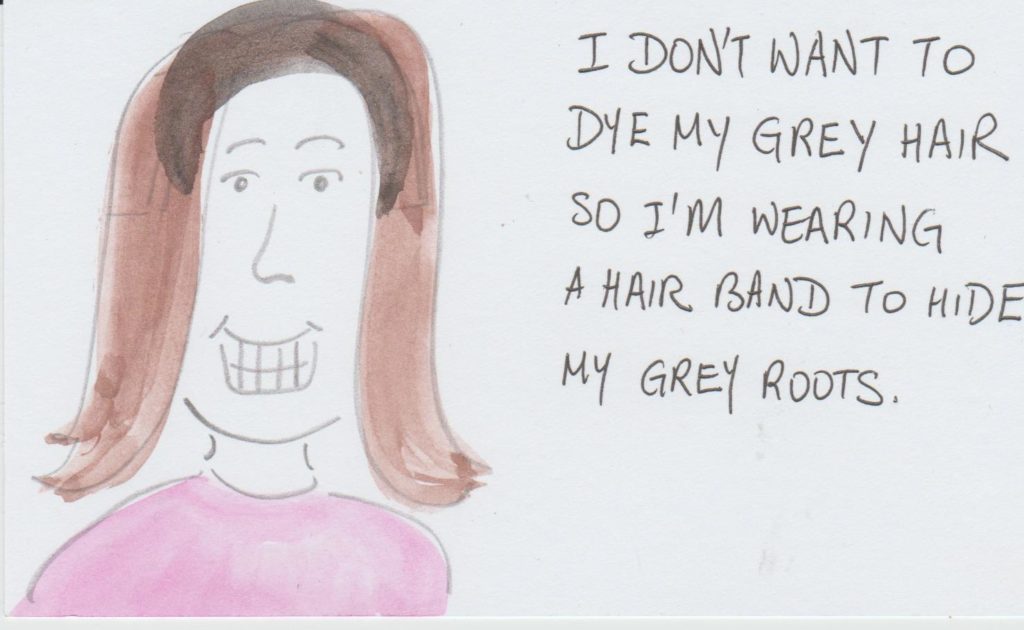 I DON'T WANT TO
DYE MY GREY HAIR
SO I'M WEARING
A HAIR BAND TO HIDE
MY GREY ROOTS.